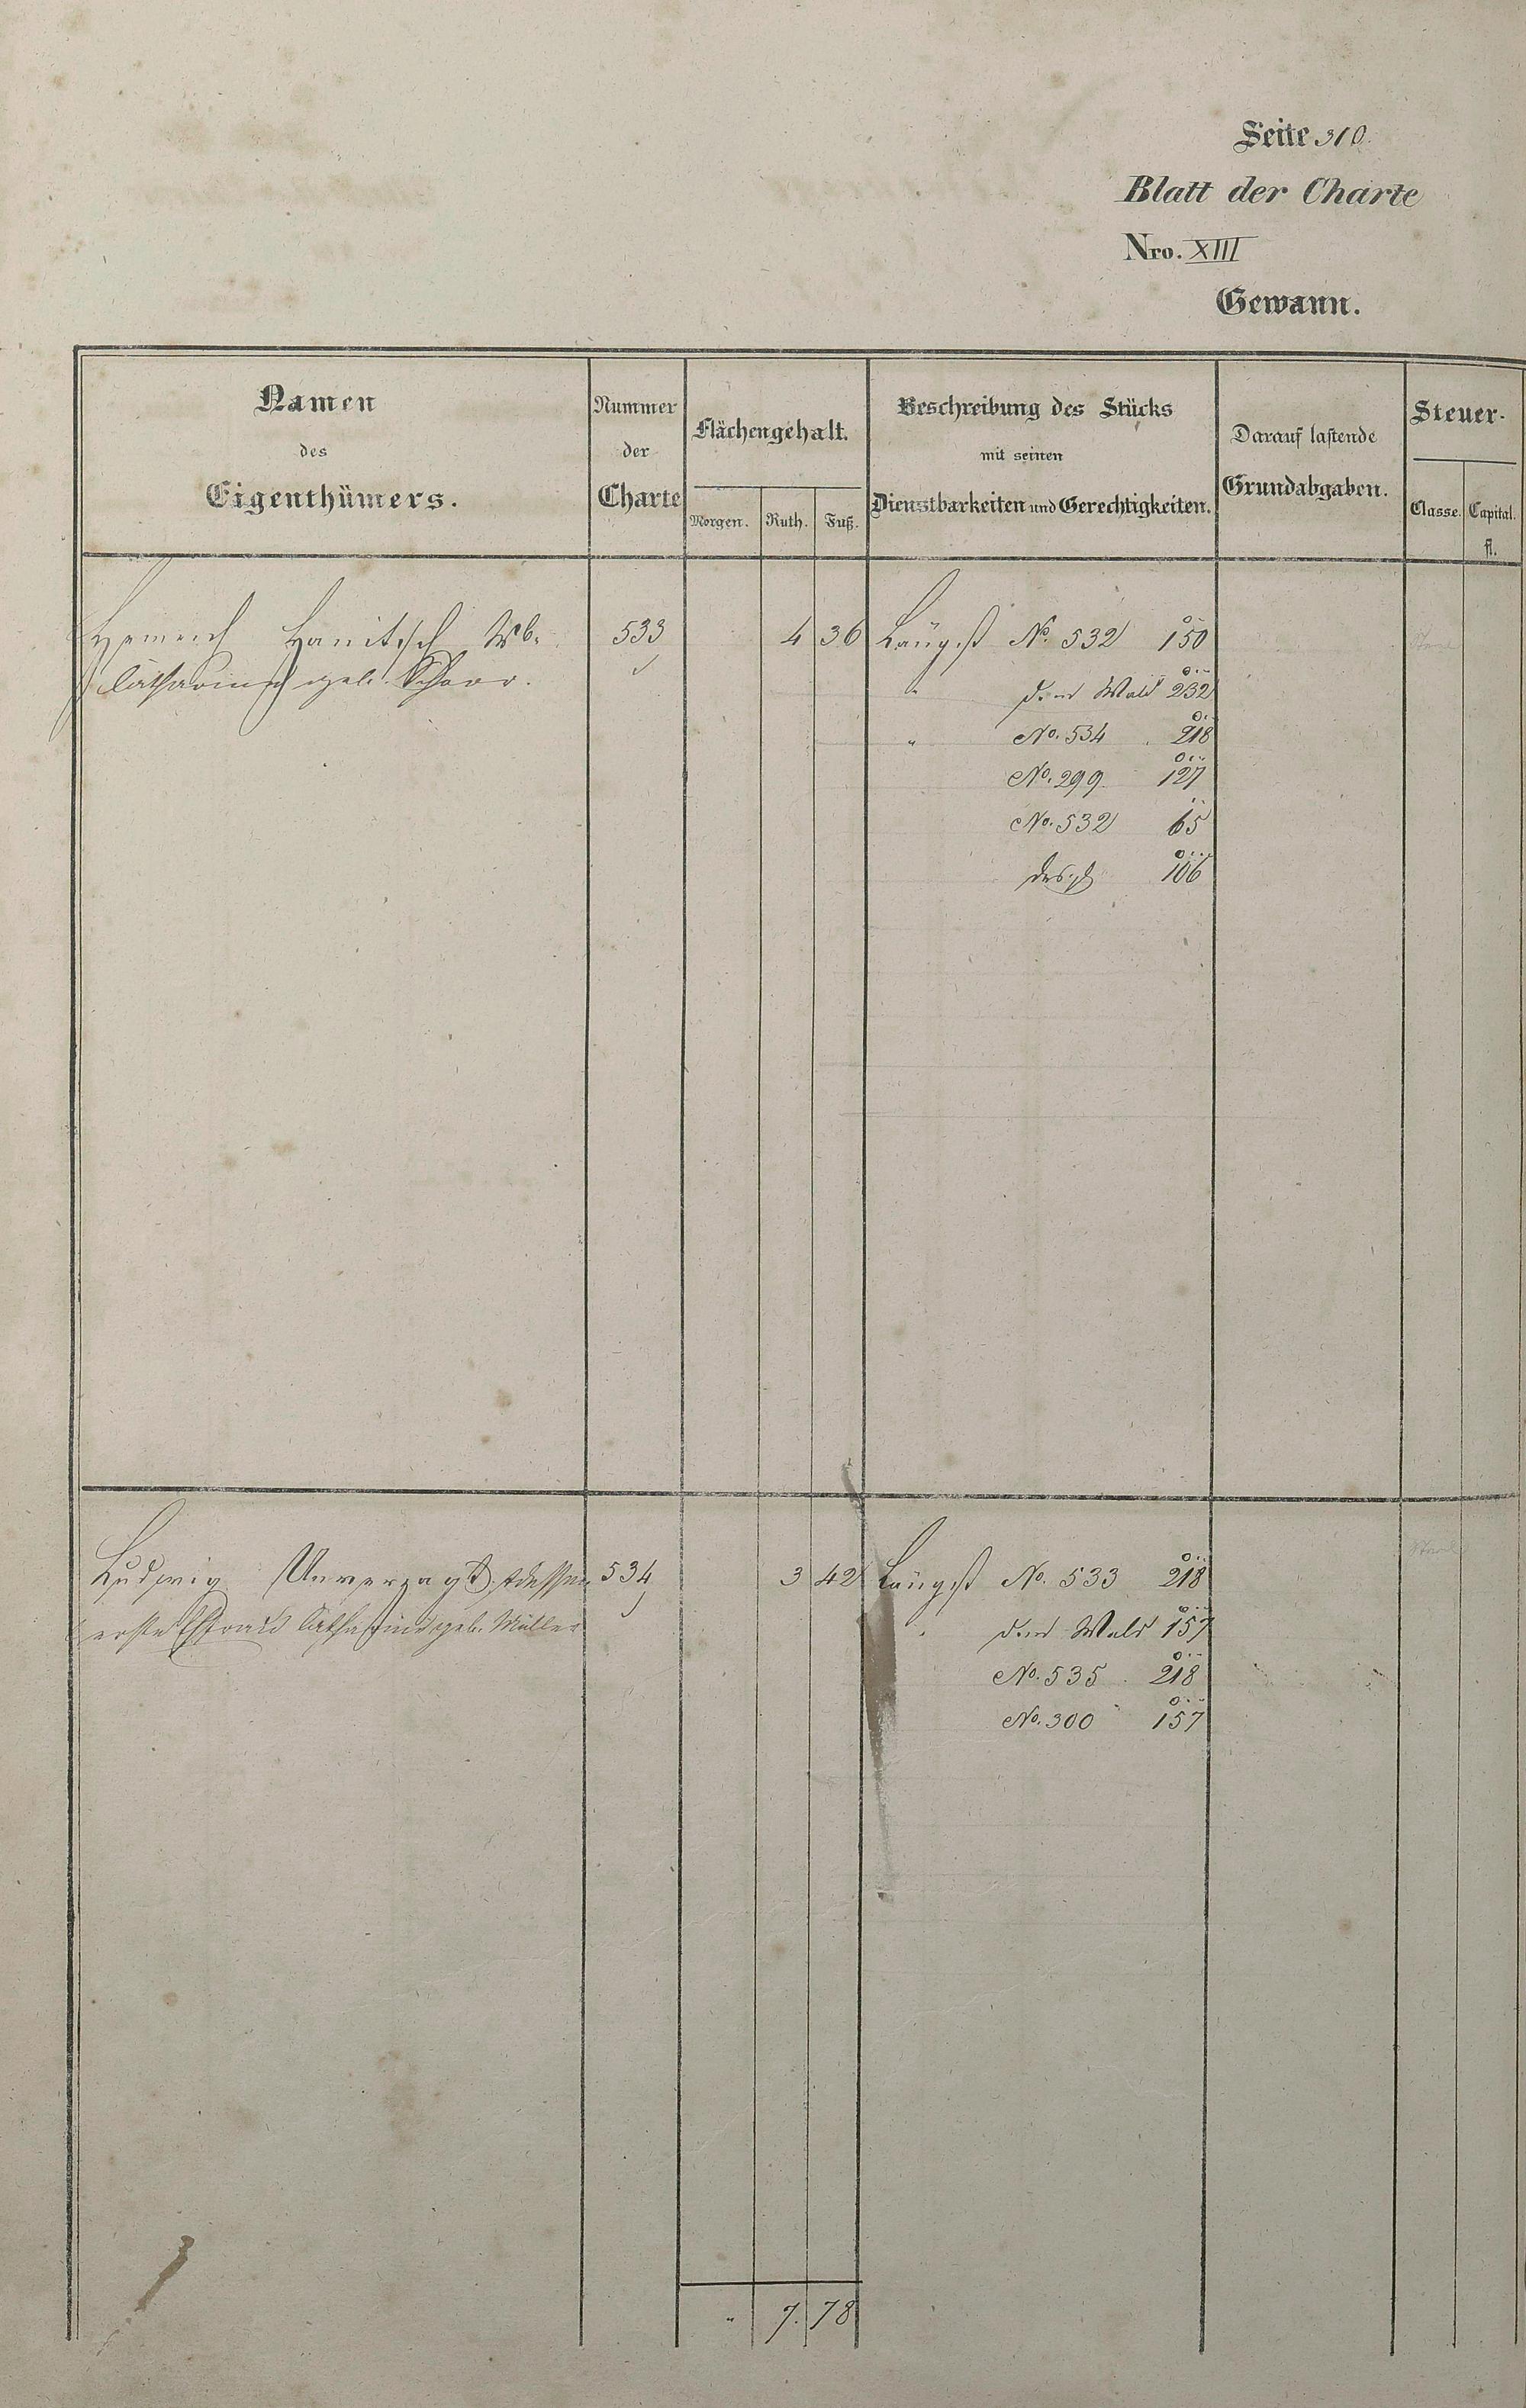 Seite 310.
Blatt der Charte
Nro. XIII
Gewann.
Namen
des
Eigenthümers.
Nummer
der
Charte
Flächengehalt.
Morgen. Ruth. Fuß.
Beschreibung des Stücks
mit seinen
Dienstbarkeiten und Gerechtigkeiten.
Darauf lastende
Grundabgaben.
Steuer-
Classe. Capital.
fl.
Heinrich Hanitsch Wb. 533 4 36 Längst No. 532 150
Catharina geb. Schorr.
" dem Wald 232
" No. 534 218
No. 299 127
No. 532 65
desgl 106
Ludwig Unverzagt dessen 534 3 42 Längst No. 533 218
erste Ehefrau Catharina geb. Müller
" dem Wald 157
No. 535 218
No. 300 157
" 7. 78